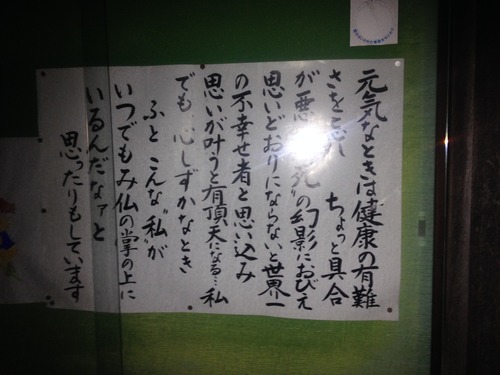 元気なときは健康の有難
さを忘れ ちょっと具合
が悪 死”の幻影におびえ
思いどおりにならないと世界一
の不幸せ者と思い込み
思いが叶うと有頂天になる…私
でも 心しずかなとき
ふと こんな“私”が
いつでもみ仏の掌の上に
いるんだなァと
思ったりもしています